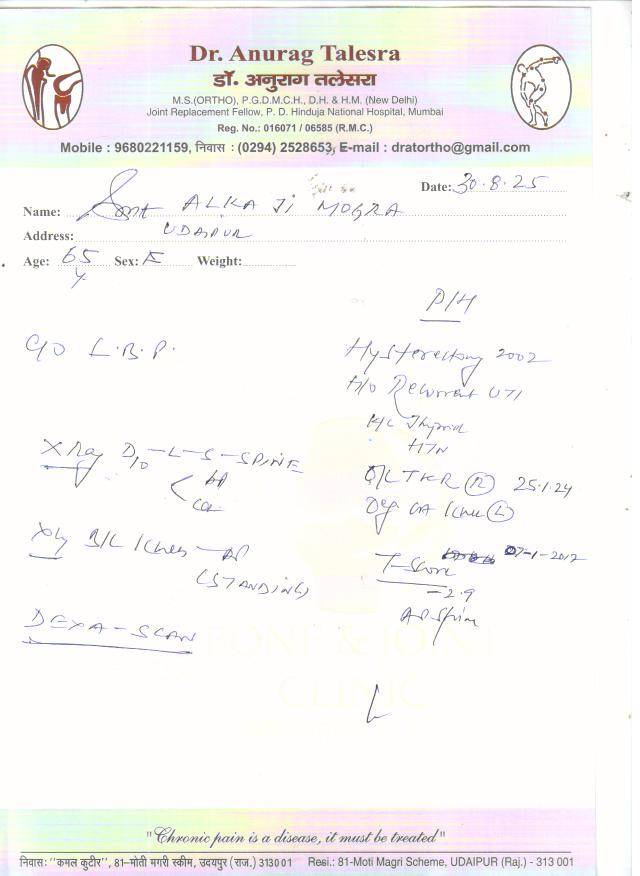 Dr. Anurag Talesra
डॉ. अनुराग तलेसरा
M.S.(ORTHO), P.G.D.M.C.H., D.H. & H.M. (New Delhi)
Joint Replacement Fellow, P. D. Hinduja National Hospital, Mumbai
Reg. No.: 016071 / 06585 (R.M.C.)
Mobile : 9680221159, निवास : (0294) 2528653, E-mail : dratortho@gmail.com
Date: 30.8.25
Name: Smt ALKA Ji MOGRA
Address: UDAIPUR
Age: 65 Y Sex: F Weight:
P/H
C/O L.B.P.
Hysterectomy 2002
H/O Recurrent UTI
K/C Thyroid
HTN
X Ray D10-L-S-SPINE
AP
O/L TKR (R) 25.1.24
Deg OA Knee (L)
X Ray B/L Knee - AP
(STANDING)
T-Score 07-1-2012
-2.9
AP Spine
DEXA-SCAN
BONE & JOINT
CLINIC
"Chronic pain is a disease, it must be treated"
निवास: "कमल कुटीर", 81-मोती मगरी स्कीम, उदयपुर (राज.) 313001 Resi.: 81-Moti Magri Scheme, UDAIPUR (Raj.) - 313 001